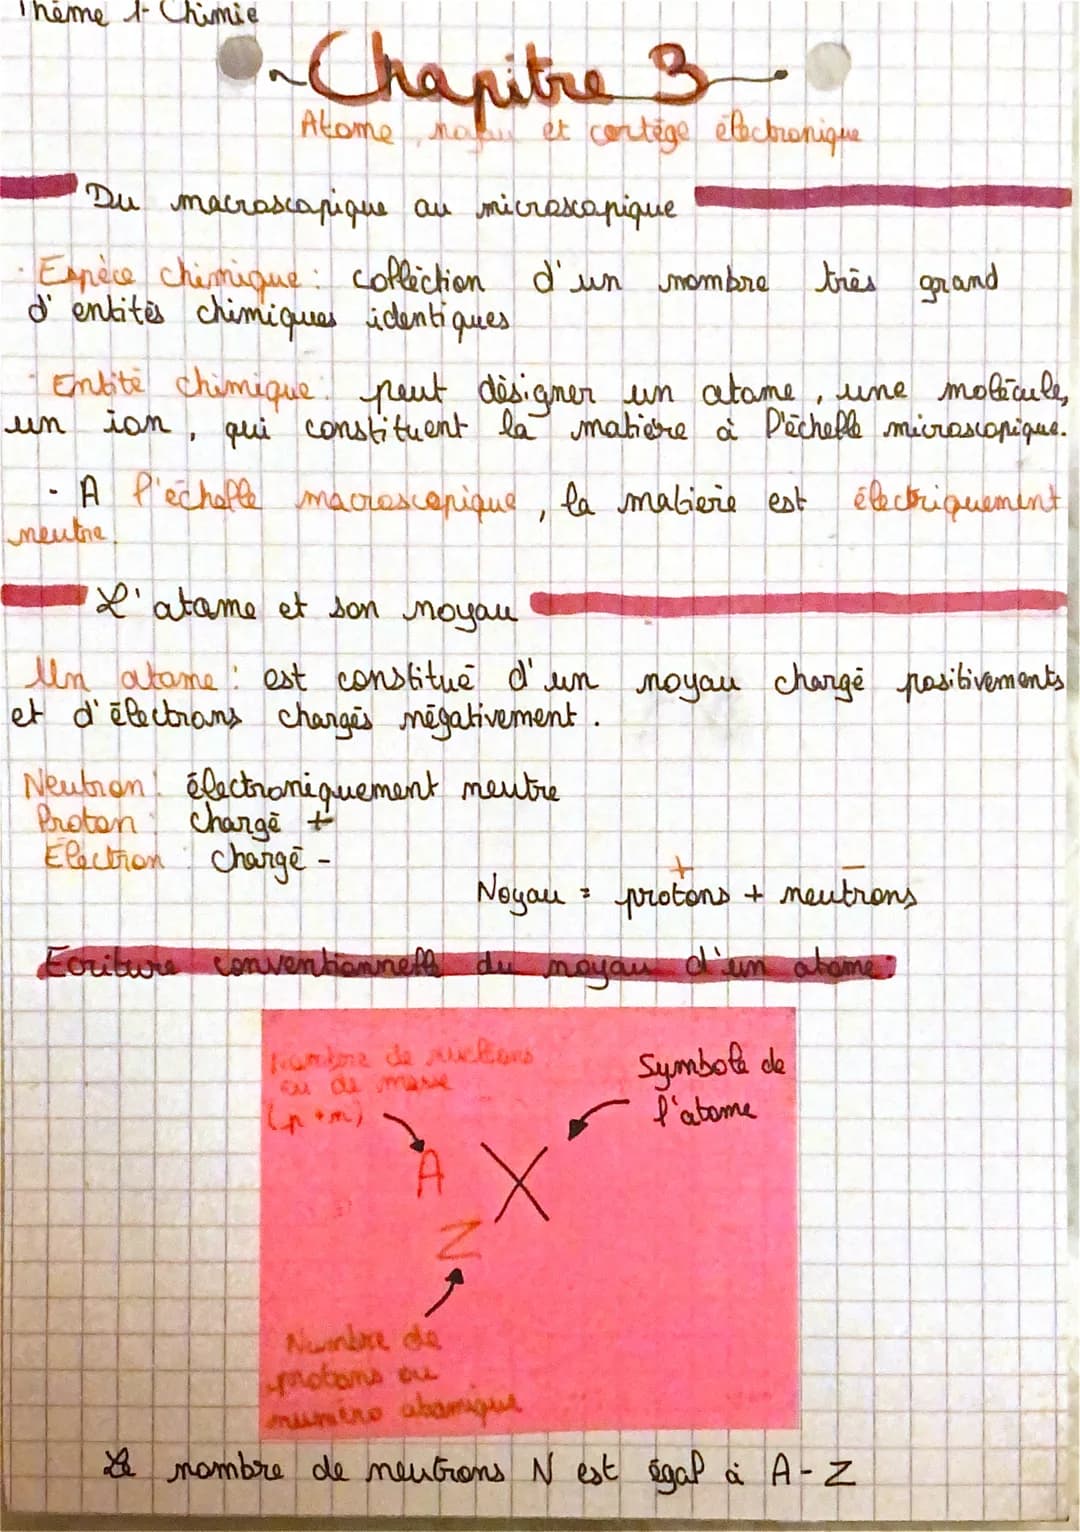 Thème 1- Chimie
Chapitre 3
Atome, noyau et cortège électronique
Du macroscopique au microscopique
· Espèce chimique : collection d'un nombre très grand
d'entités chimiques identiques
· Entité chimique : peut désigner un atome, une molécule,
un ion, qui constituent la matière à l'échelle microscopique.
· A l'échelle macroscopique, la matière est électriquement
neutre.
L'atome et son noyau
Un atome : est constitué d'un noyau chargé positivements
et d'électrons chargés négativement.
Neutron : électroniquement neutre
Proton : chargé +
Électron : chargé -
+ −
Noyau = protons + neutrons
Ecriture conventionnelle du noyau d'un atome :
Nombre de nucléons
ou de masse
(p + n)
Symbole de
l'atome
A X
Z
Numbre de
protons ou
numéro atomique
Le nombre de neutrons N est égal à A - Z